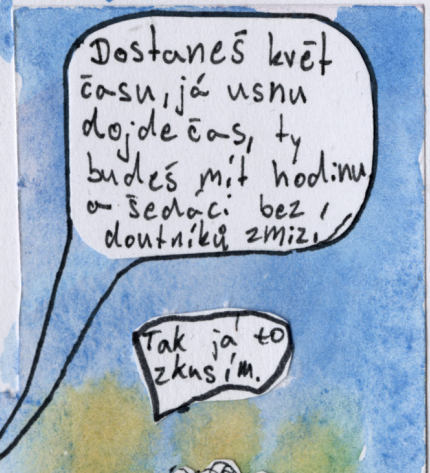 Dostaneš květ
času, já usnu
dojde čas, ty
budeš mít hodinu
a šedáci bez
doutníků zmizí.
Tak já to
zkusím.